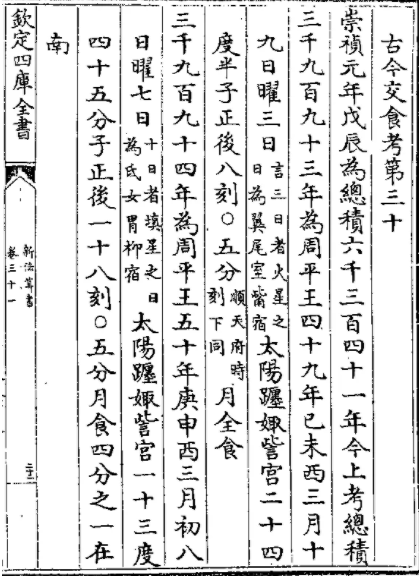 古今交食考第三十
崇禎元年戊辰為總積六千三百四十一年今上考總積
三千九百九十三年為周平王四十九年己未西三月十
九日曜三日言三日者火星之日為翼尾室觜宿太陽躔娵訾宮二十四
度半子正後八刻〇五分順天府時刻下同月全食
三千九百九十四年為周平王五十年庚申西三月初八
日曜七日十日者填星之日為氐女胃柳宿太陽躔娵訾宮一十三度
四十五分子正後一十八刻〇五分月食四分之一在
南
欽定四庫全書
新法算書
卷三十一